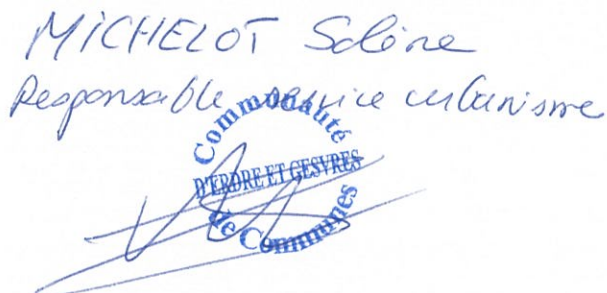 MICHELOT Solène
Responsable service urbanisme
Communauté
D'ERDRE ET GESVRES
de Communes